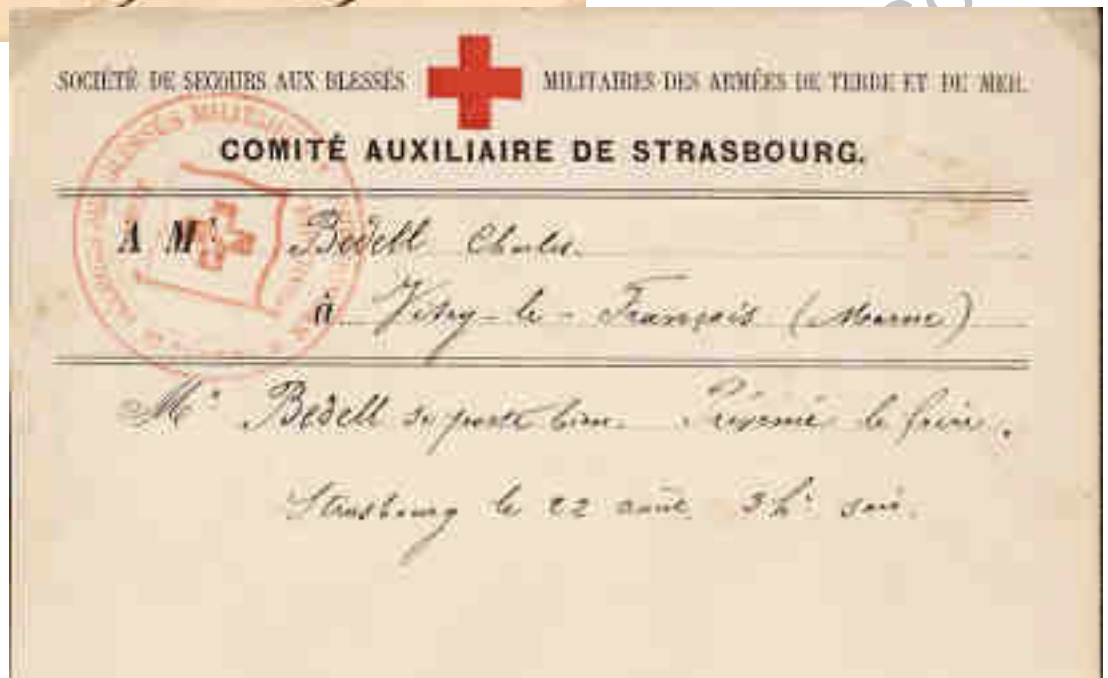 SOCIÉTÉ DE SECOURS AUX BLESSÉS MILITAIRES DES ARMÉES DE TERRE ET DE MER.
COMITÉ AUXILIAIRE DE STRASBOURG.
A Mr Bedell Charles.
à Vitry-le-Français (Marne)
Mr Bedell se porte bien. le frère.
Strasbourg le 22 août 3 h. soir.